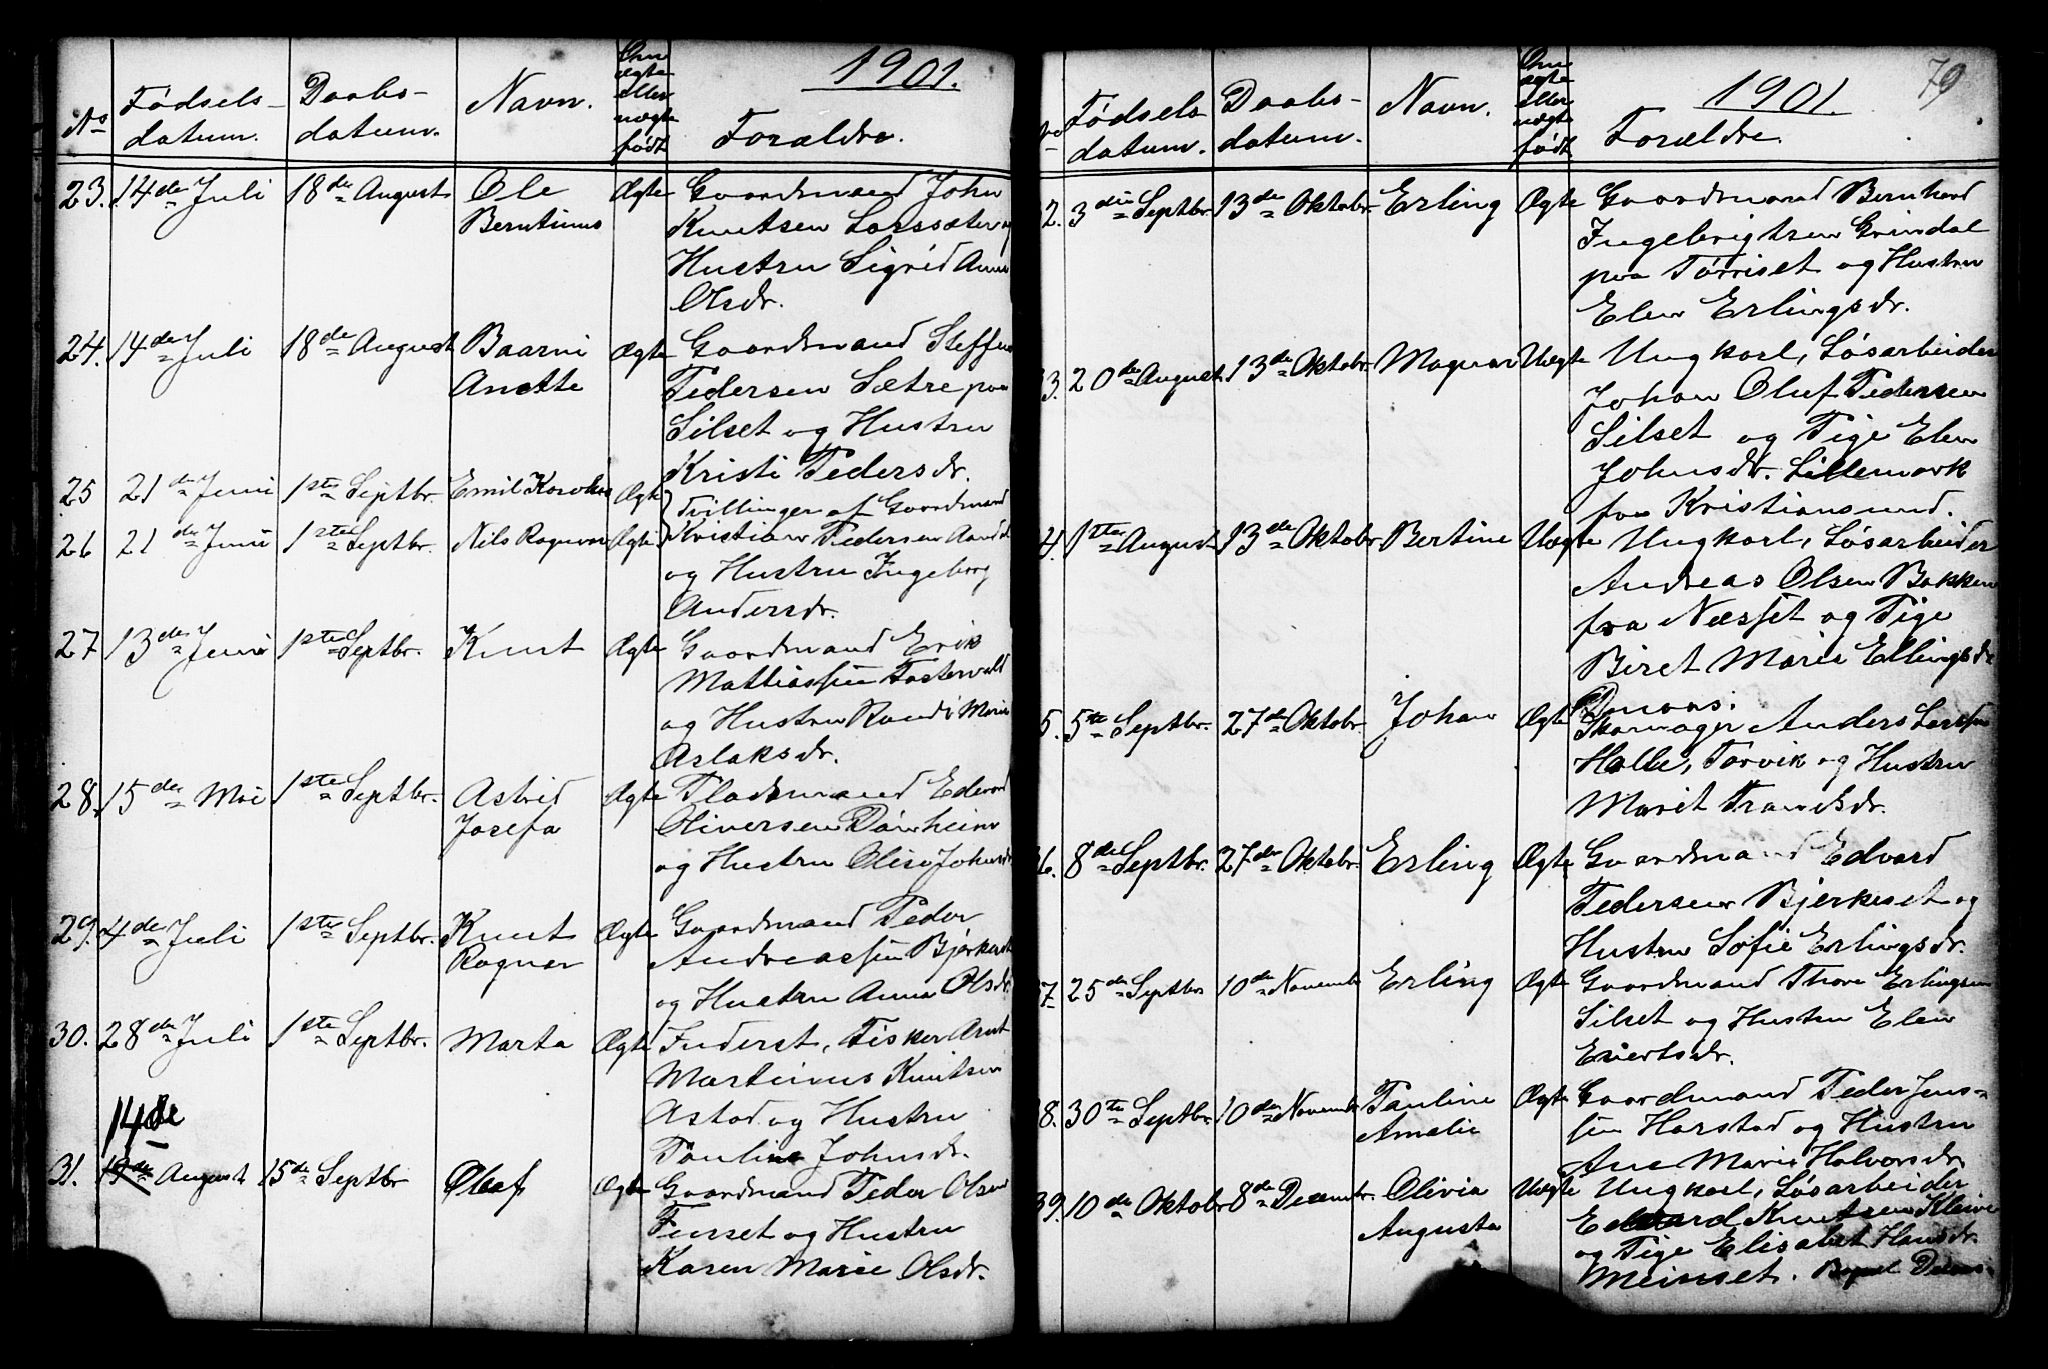 1901.
No Fødsels- datum. Daabs- datum. Navn. Om ægte eller uægte født Forældre.
23. 14de Juli 18de August Ole Ægte Gaardmand John
Berntinus Knutsen Larssæter og
Hustru Sigrid Anna
Olsdr.
24. 14de Juli 18de August Baarni Ægte Gaardmand Steffen
Anette Pedersen Sætre paa
Silset og Hustru
Kristi Pedersdr.
25 21de Juni 1ste Septbr. Emil Ægte Tvillinger af Gaardmand
26 21de Juni 1ste Septbr. Nils Ragnvar Ægte Kristian Pedersen
og Hustru Ingeborg
Andersdr.
27 13de Juni 1ste Septbr. Knut Ægte Gaardmand Erik
Mathiassen Tastervold
og Hustru Randi Marie
Aslaksdr.
28. 15de Mai 1ste Septbr. Astrid Ægte Pladsmand Edvard
Josefa Oliversen Dønheim
og Hustru Olise Johnsdr
29. 4de Juli 1ste Septbr. Knut Ægte Gaardmand Peder
Ragnar Andreassen Bjørkeset
og Hustru Anna Olsdr.
30. 28de Juli 1ste Septbr. Marta Ægte Inderst, Fisker Arnt
Martinus Knutsen
Astad og Hustru
14de Pauline Johnsdr.
31. 19de August 15de Septbr Olaf Ægte Gaardmand Peder Olsen
Furset og Hustru
Karen Marie Olsdr.
79
1901.
Fødsels datum. Daabs- datum. Navn. Om ægte eller uægte født Forældre.
2. 3die Septbr. 13de Oktobr. Erling Ægte Gaardmand Bernhard
Ingebrigtsen Grindal
paa Tørriset og Hustru
Elen Erlingsdr.
3. 20de August 13de Oktobr. Magnar Uægte Ungkarl, Løsarbeider
Johan Oluf Pedersen
Silset og Pige Elen
Johnsdr. Lillemork
fra Kristiansund.
4. 1ste August 13de Oktobr Bertine Uægte Ungkarl, Løsarbeider
Andreas Olsen Bakken
fra Næsset og Pige
Beret Marie Ellingsdr
5. 5te Septbr. 27de Oktobr. Johan Ægte Skomager Anders Larssen
Halle, Torvik og Hustru
Marit Trondsdr.
6. 8de Septbr. 27de Oktobr. Erling Ægte Gaardmand Edvard
Pedersen Bjerkeset og
Hustru Sofie Erlingsdr.
7. 25de Septbr 10de Novembr Erling Ægte Gaardmand Thore Erlingsen
Silset og Hustru Elen
Eivertsdr.
8. 30te Septbr. 10de Novembr Pauline Ægte Gaardmand Peder Jens-
Amalie sen Harstad og Hustru
Ane Marie Halvorsdr.
39. 10de Oktobr 8de Decembr. Olivia Uægte Ungkarl, Løsarbeider
Augusta Edvard Knutsen Kleive
og Pige Elisabet Hansdr.
Meinset.